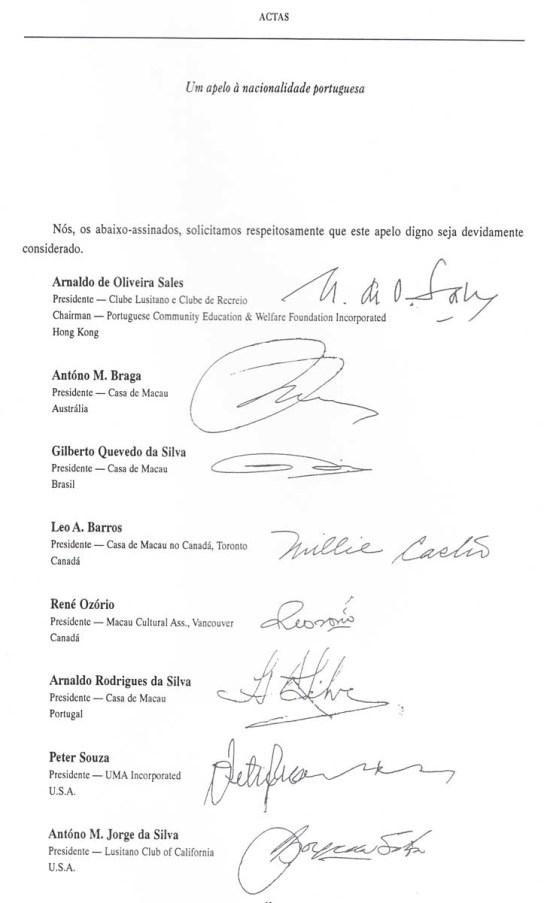 ACTAS
Um apelo à nacionalidade portuguesa
Nós, os abaixo-assinados, solicitamos respeitosamente que este apelo digno seja devidamente
considerado.
Arnaldo de Oliveira Sales
Presidente — Clube Lusitano e Clube de Recreio
Chairman — Portuguese Community Education & Welfare Foundation Incorporated
Hong Kong
A. de O. Sales
Antóno M. Braga
Presidente — Casa de Macau
Austrália
Gilberto Quevedo da Silva
Presidente — Casa de Macau
Brasil
Leo A. Barros
Presidente — Casa de Macau no Canadá, Toronto
Canadá
Millie Castro
René Ozório
Presidente — Macau Cultural Ass., Vancouver
Canadá
Arnaldo Rodrigues da Silva
Presidente — Casa de Macau
Portugal
Peter Souza
Presidente — UMA Incorporated
U.S.A.
Antóno M. Jorge da Silva
Presidente — Lusitano Club of California
U.S.A.